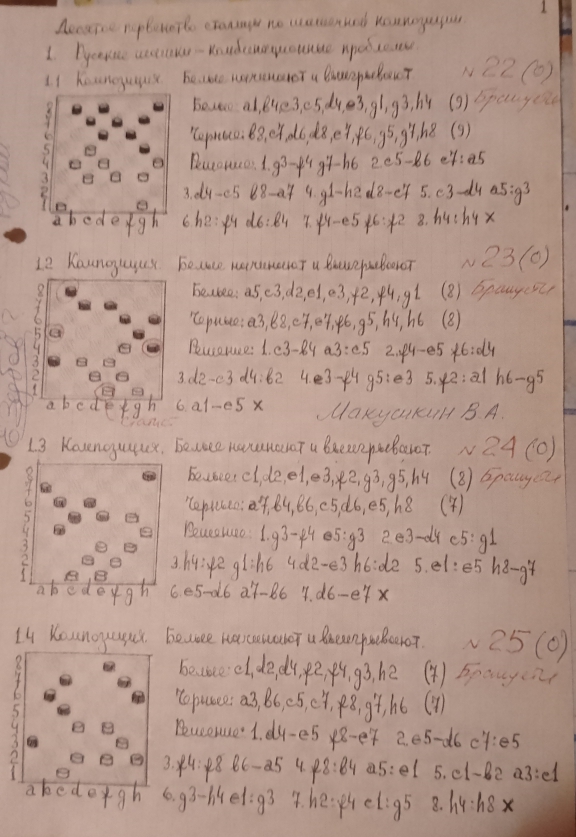 1
Десятое первенство столицы по шашечной композиции.
1. Русские шашки - комбинационные проблемы.
1.1 Композиция. Белые начинают и выигрывают N 22 (0)
Белые: a1, b4, c3, c5, d4, e3, g1, g3, h4 (9)
Черные: b8, c7, d6, d8, e7, f6, g5, g7, h8 (9)
Решение: 1. g3-f4 g7-h6 2. c5-b6 e7:a5
3. d4-c5 b8-a7 4. g1-h2 d8-c7 5. c3-d4 a5:g3
6. h2:f4 d6:b4 7. f4-e5 f6:f2 8. h4:h4 x
8 7 6 5 4 3 2 1
a b c d e f g h
1.2 Композиция. Белые начинают и выигрывают N 23 (0)
Белые: a5, c3, d2, e1, e3, f2, f4, g1 (8)
Черные: a3, b8, c7, e7, f6, g5, h4, h6 (8)
Решение: 1. c3-b4 a3:c5 2. f4-e5 f6:d4
3. d2-c3 d4:b2 4. e3-f4 g5:e3 5. f2:a1 h6-g5
6. a1-e5 x Макушкин В.А.
8 7 6 5 4 3 2 1
a b c d e f g h
1.3 Композиция. Белые начинают и выигрывают. N 24 (0)
Белые: c1, d2, e1, e3, f2, g3, g5, h4 (8)
Черные: a7, b4, b6, c5, d6, e5, h8 (7)
Решение: 1. g3-f4 e5:g3 2. e3-d4 c5:g1
3. h4:f2 g1:h6 4. d2-e3 h6:d2 5. e1:e5 h8-g7
6. e5-d6 a7-b6 7. d6-e7 x
8 7 6 5 4 3 2 1
a b c d e f g h
1.4 Композиция. Белые начинают и выигрывают. N 25 (0)
Белые: c1, d2, d4, f2, f4, g3, h2 (7)
Черные: a3, b6, c5, c7, f8, g7, h6 (7)
Решение: 1. d4-e5 f8-e7 2. e5-d6 c7:e5
3. f4:f8 b6-a5 4. f8:b4 a5:e1 5. c1-b2 a3:c1
6. g3-h4 e1:g3 7. h2:f4 c1:g5 8. h4:h8 x
8 7 6 5 4 3 2 1
a b c d e f g h